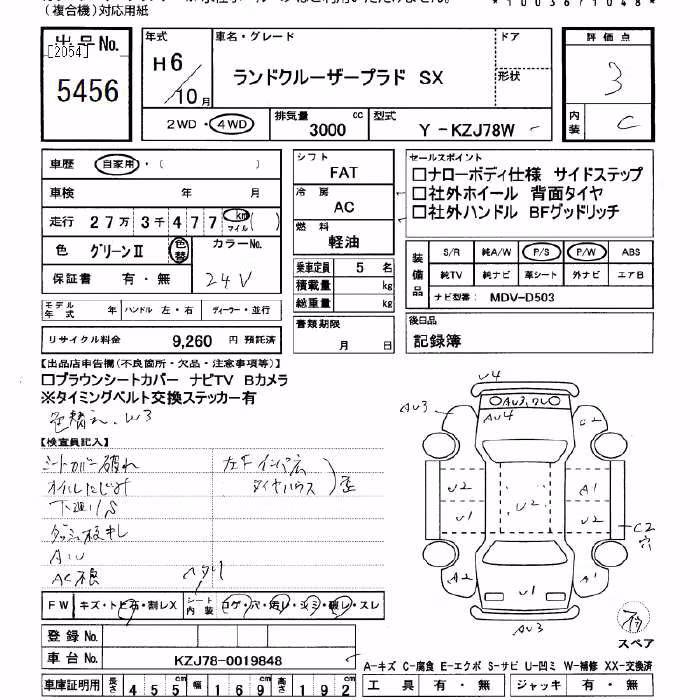 (複合機)対応用紙
*10036/1048*
出品No.
[2054]
5456
年式
H6/10月
車名・グレード
ランドクルーザープラド SX
ドア
形状
評価点
3
内装
C
2WD・4WD
排気量
3000 cc
型式
Y-KZJ78W
車歴 自家用・( )
車検 年 月
走行 27万3千477 km マイル ( )
色 グリーンⅡ 色替 カラーNo.
24V
保証書 有・無
モデル年式 年 ハンドル 左・右 ディーラー・並行
リサイクル料金 9,260 円 預託済
シフト
FAT
冷房
AC
燃料
軽油
乗車定員 5 名
積載量 kg
総重量 kg
書類期限
月 日
セールスポイント
□ナローボディ仕様 サイドステップ
□社外ホイール 背面タイヤ
□社外ハンドル BFグッドリッチ
装備品
S/R 純A/W P/S P/W ABS
純TV 純ナビ 革シート 外ナビ エアB
ナビ型番: MDV-D503
後日品
記録簿
【出品店申告欄(不良箇所・欠品・注意事項等)】
□ブラウンシートカバー ナビTV Bカメラ
※タイミングベルト交換ステッカー有
色替え、W3
【検査員記入】
シートカバー破れ
オイルにじみ
下廻りS
AW
左Fインパネ
タイヤハウス
歪
FW キズ・トビ石・割レX
ヘタリ
シート内装 コゲ・穴・汚レ・シミ・破レ・スレ
登録No.
車台No. KZJ78-0019848
車庫証明用 長さ 455cm 幅 169cm 高さ 192cm
U4
AU3
AU3,フレ
AU4
C2
U2
U2
A1
U1
U2
C2
穴
A2
U1
A1
AU3
スペア
A-キズ C-腐食 E-エクボ S-サビ U-凹ミ W-補修 XX-交換済
工具 有・無 ジャッキ 有・無